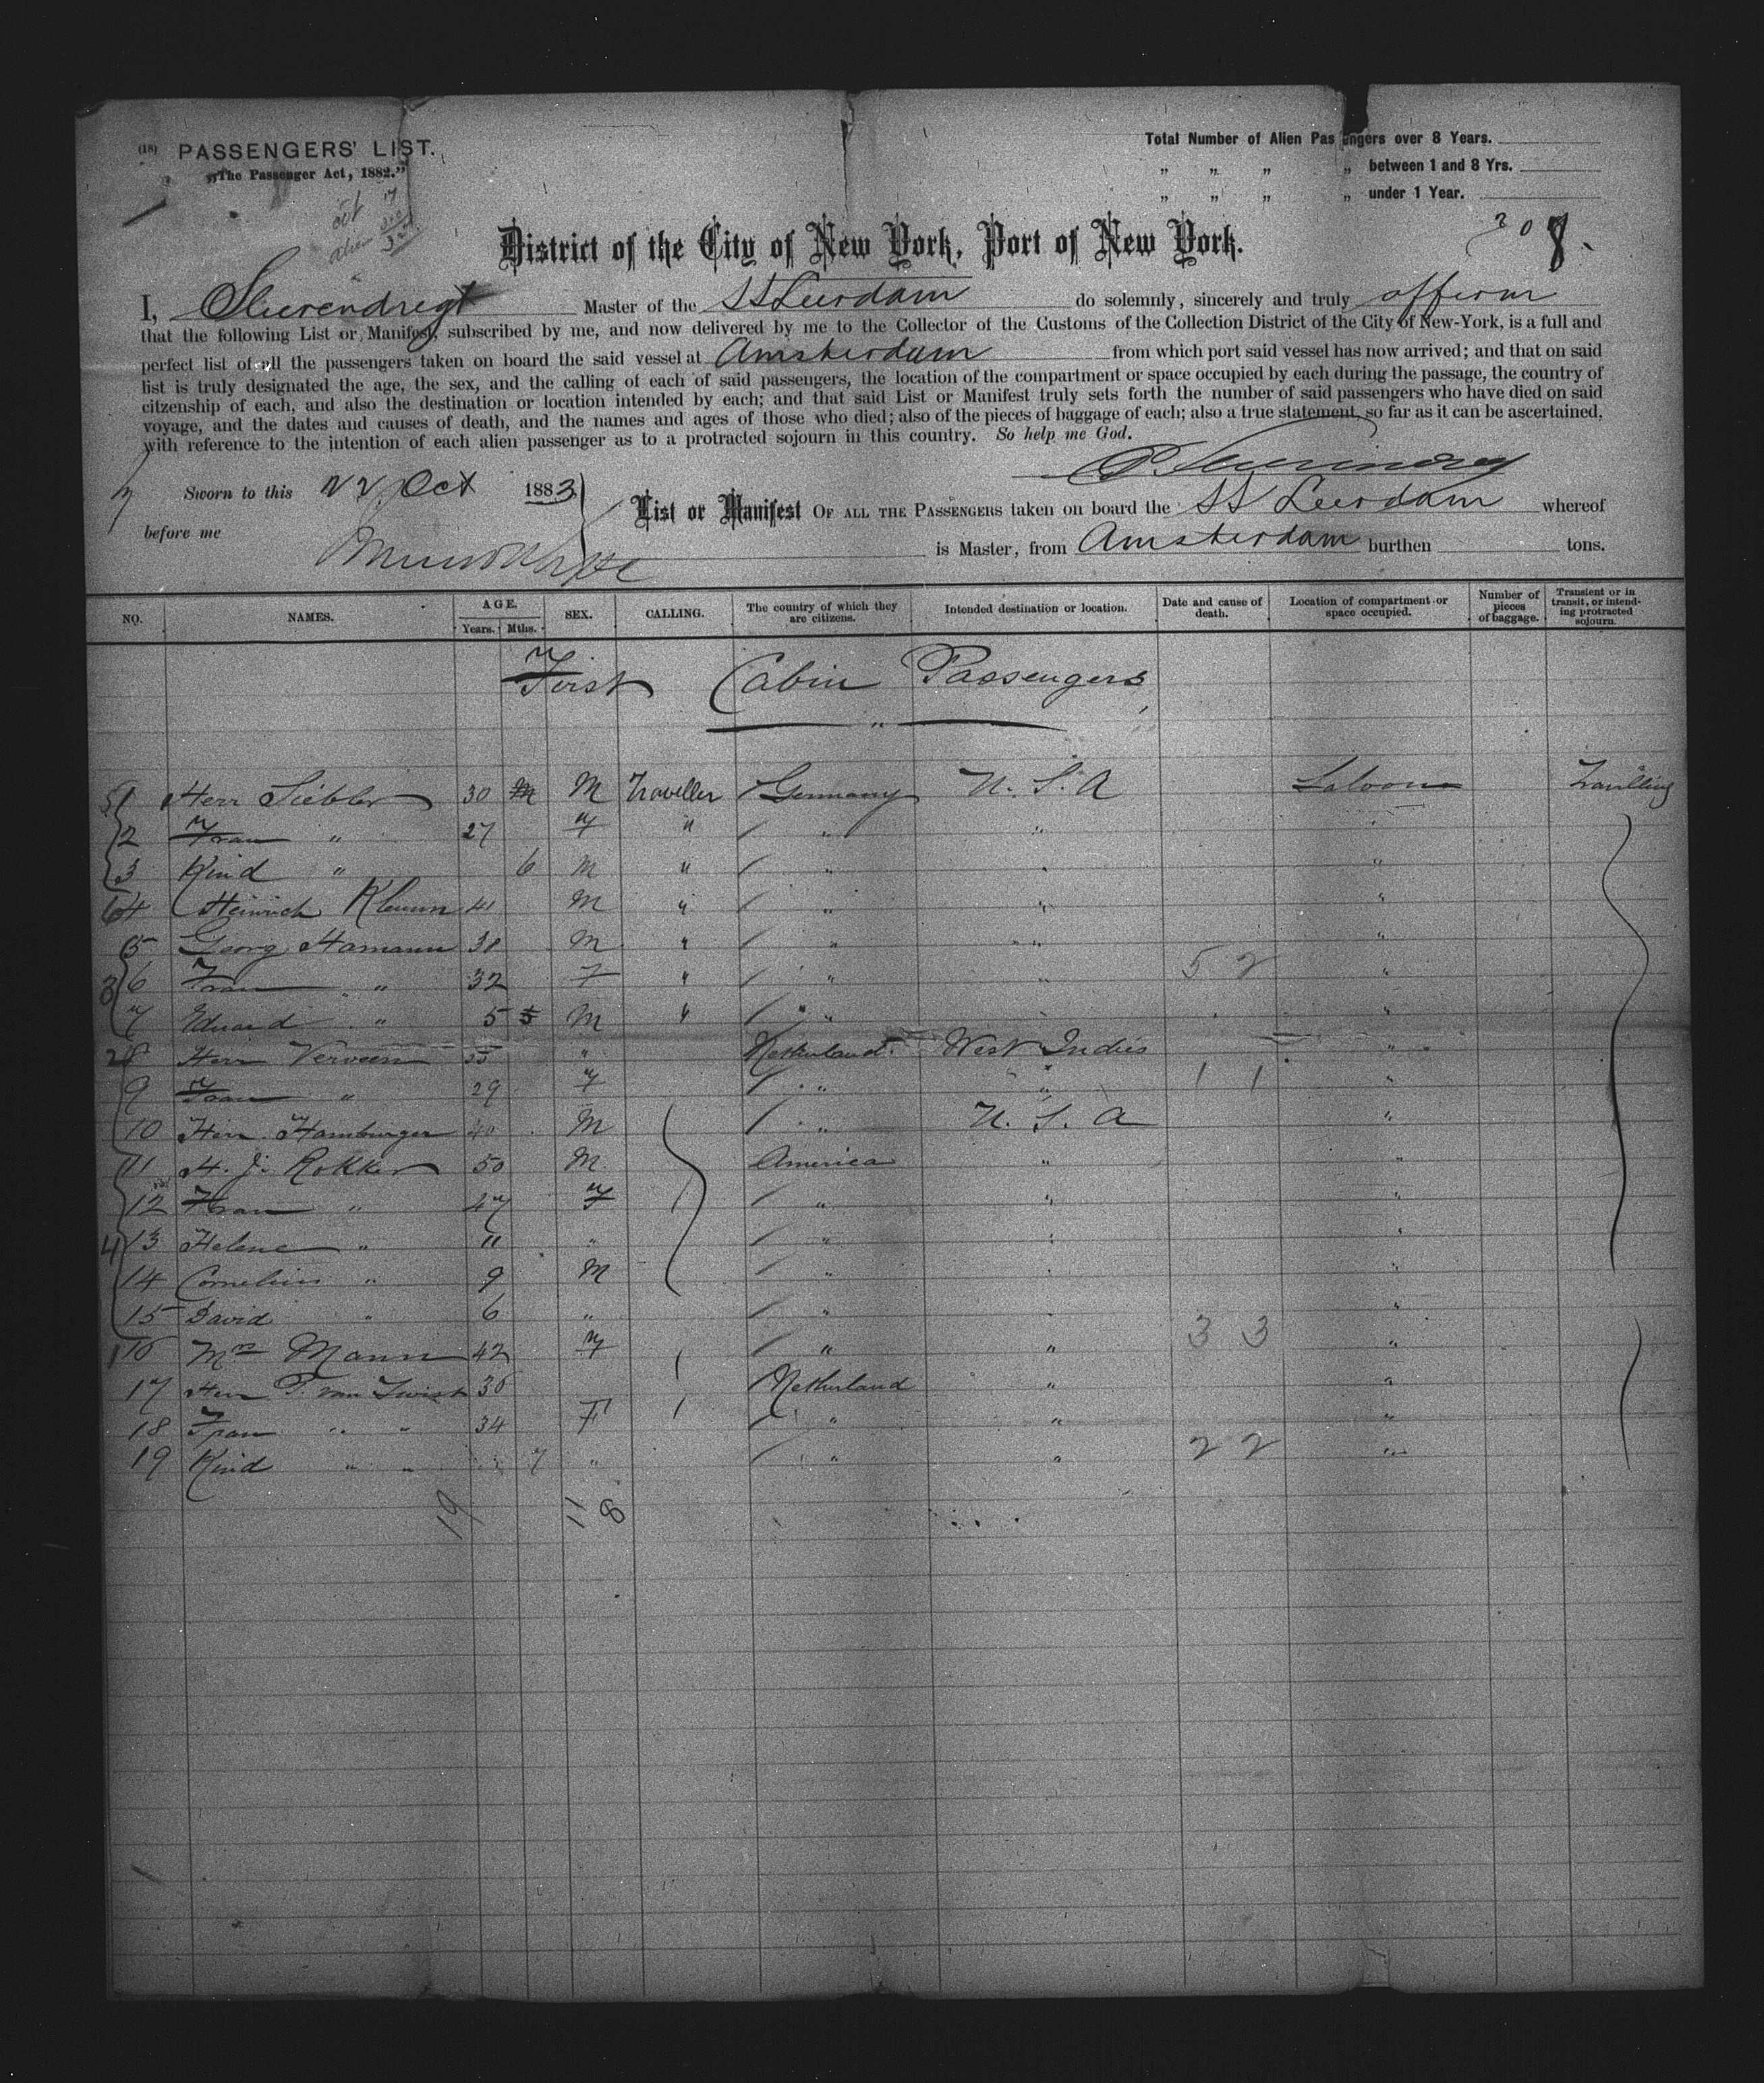 (18) PASSENGERS' LIST.
„The Passenger Act, 1882."
Total Number of Alien Passengers over 8 Years.
„ „ „ „ between 1 and 8 Yrs.
„ „ „ „ under 1 Year.
District of the City of New York, Port of New York.
I, Stierendregt Master of the SS Leerdam do solemnly, sincerely and truly affirm
that the following List or Manifest, subscribed by me, and now delivered by me to the Collector of the Customs of the Collection District of the City of New-York, is a full and
perfect list of all the passengers taken on board the said vessel at Amsterdam from which port said vessel has now arrived; and that on said
list is truly designated the age, the sex, and the calling of each of said passengers, the location of the compartment or space occupied by each during the passage, the country of
citzenship of each, and also the destination or location intended by each; and that said List or Manifest truly sets forth the number of said passengers who have died on said
voyage, and the dates and causes of death, and the names and ages of those who died; also of the pieces of baggage of each; also a true statement, so far as it can be ascertained,
with reference to the intention of each alien passenger as to a protracted sojourn in this country. So help me God.
Sworn to this 22 Oct 1883
before me
List or Manifest OF ALL THE PASSENGERS taken on board the SS Leerdam whereof
is Master, from Amsterdam burthen tons.
NO. NAMES. AGE. Years. Mths. SEX. CALLING. The country of which they are citizens. Intended destination or location. Date and cause of death. Location of compartment or space occupied. Number of pieces of baggage. Transient or in transit, or intending protracted sojourn.
First Cabin Passengers
1 Herr Siebler 30 M Traveller Germany U. S. A Saloon
2 Frau " 27 F " " " "
3 Kind " 6 M " " " "
4 Heinrich Klemm 41 M " " " "
5 Georg Hamann 38 M " " " "
6 Frau " 32 F " " " 5 2 "
7 Eduard " 5 M " " " "
8 Herr Verveen 35 " Netherland West Indies "
9 Frau " 29 F " " 1 1 "
10 Herr Hamburger 40 M " U. S. A "
11 H. J. Rokker 50 M America " "
12 Frau " 47 F " " "
13 Helene " 11 " " " "
14 Cornelius " 9 M " " "
15 David " 6 " " " "
16 Mrs Mann 42 F " " 3 3 "
17 Herr P. van Twist 36 Netherland " "
18 Frau " " 34 F " " "
19 Kind " " 7 " " " 2 2 "
19 11 8